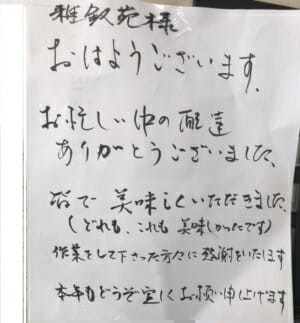 雅叙苑様
おはようございます。
お忙しい中の配達
ありがとうございました。
皆で美味しくいただきました。
(どれも、これも美味しかったです)
作業をして下さった方々に感謝をいたします
本年もどうぞ宜しくお願い申し上げます